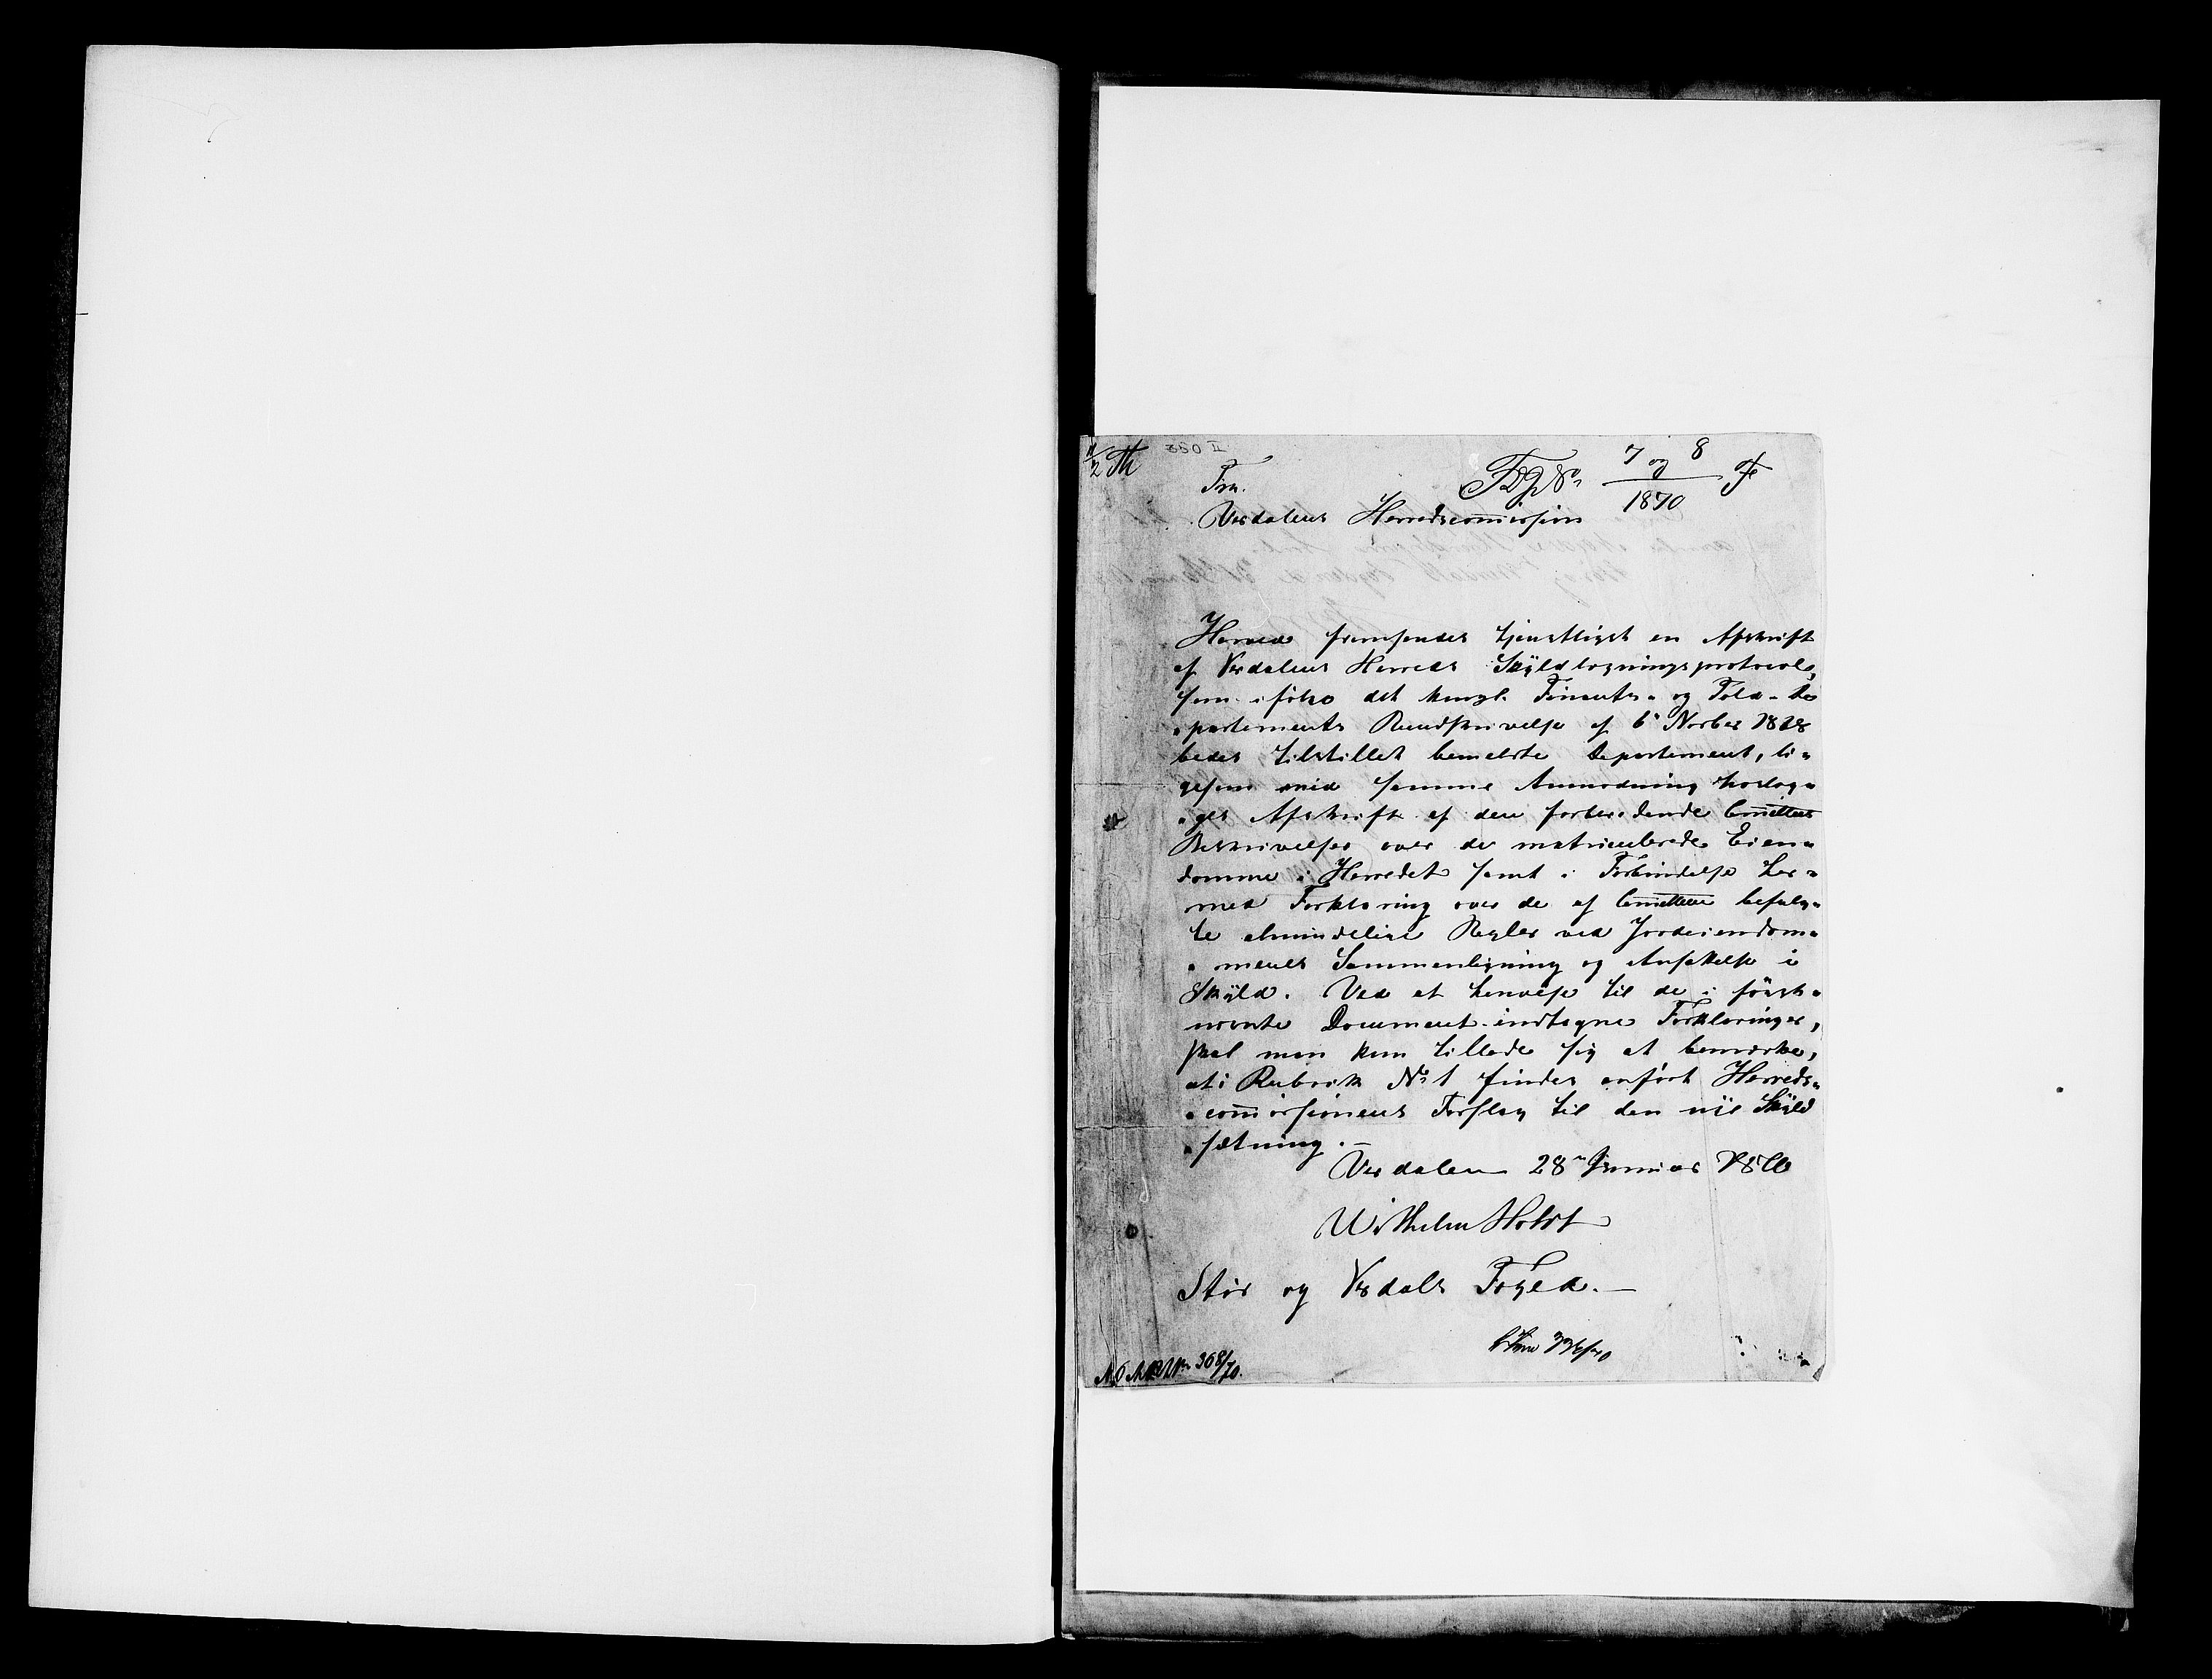 350 II
7 og 8
1870
Fra
Verdalens Herredscom̅ission
Herved fremsendes tjenstligst en Afskrift
af Verdalens Herreds Skyldlægningsprotocol,
som ifølge det kongl. Finants- og Told-De
partements Rundskrivelse af 6te Novber 1868
bedes tilstillet bemeldte Departement, li-
gesom med samme Anmodning vedlæg-
ges Afskrift af den forberedende Com̅ittees
Beskrivelse over de matriculerede Eien-
domme i Herredet samt i Forbindelse her-
med Forklaring over de af Com̅itteen befulg-
te almindelige Regler ved Jordeiendom-
menes Sammenligning og Ansættelse i
Skyld. Ved at henvise til de i først-
nævnte Document indtagne Forklaringer,
skal man kun tillade sig at bemærke,
at i Rubrik No 1 findes anført Herreds-
com̅issionens Forslag til den nye Skyld
sætning.—
Verdalen 28de Januar 1870
Wilhelm Holst
Stør og Verdals Foged.—
368/70.